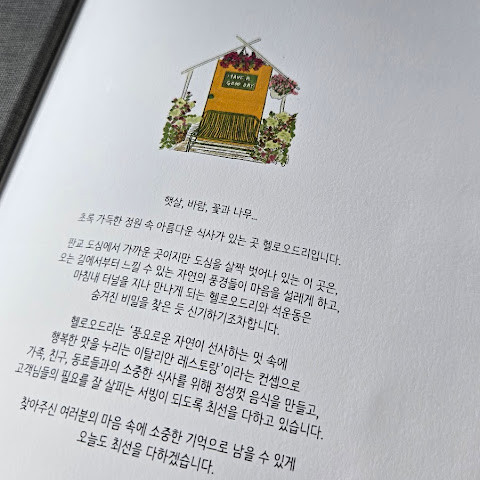 HAVE A
GOOD DAY
햇살, 바람, 꽃과 나무...
초록 가득한 정원 속 아름다운 식사가 있는 곳 헬로오드리입니다.
판교 도심에서 가까운 곳이지만 도심을 살짝 벗어나 있는 이 곳은,
오는 길에서부터 느낄 수 있는 자연의 풍경들이 마음을 설레게 하고,
마침내 터널을 지나 만나게 되는 헬로오드리와 석운동은
숨겨진 비밀을 찾은 듯 신기하기조차합니다.
헬로오드리는 '풍요로운 자연이 선사하는 멋 속에
행복한 맛을 누리는 이탈리안 레스토랑'이라는 컨셉으로
가족, 친구, 동료들과의 소중한 식사를 위해 정성껏 음식을 만들고,
고객님들의 필요를 잘 살피는 서빙이 되도록 최선을 다하고 있습니다.
찾아주신 여러분의 마음 속에 소중한 기억으로 남을 수 있게
오늘도 최선을 다하겠습니다.